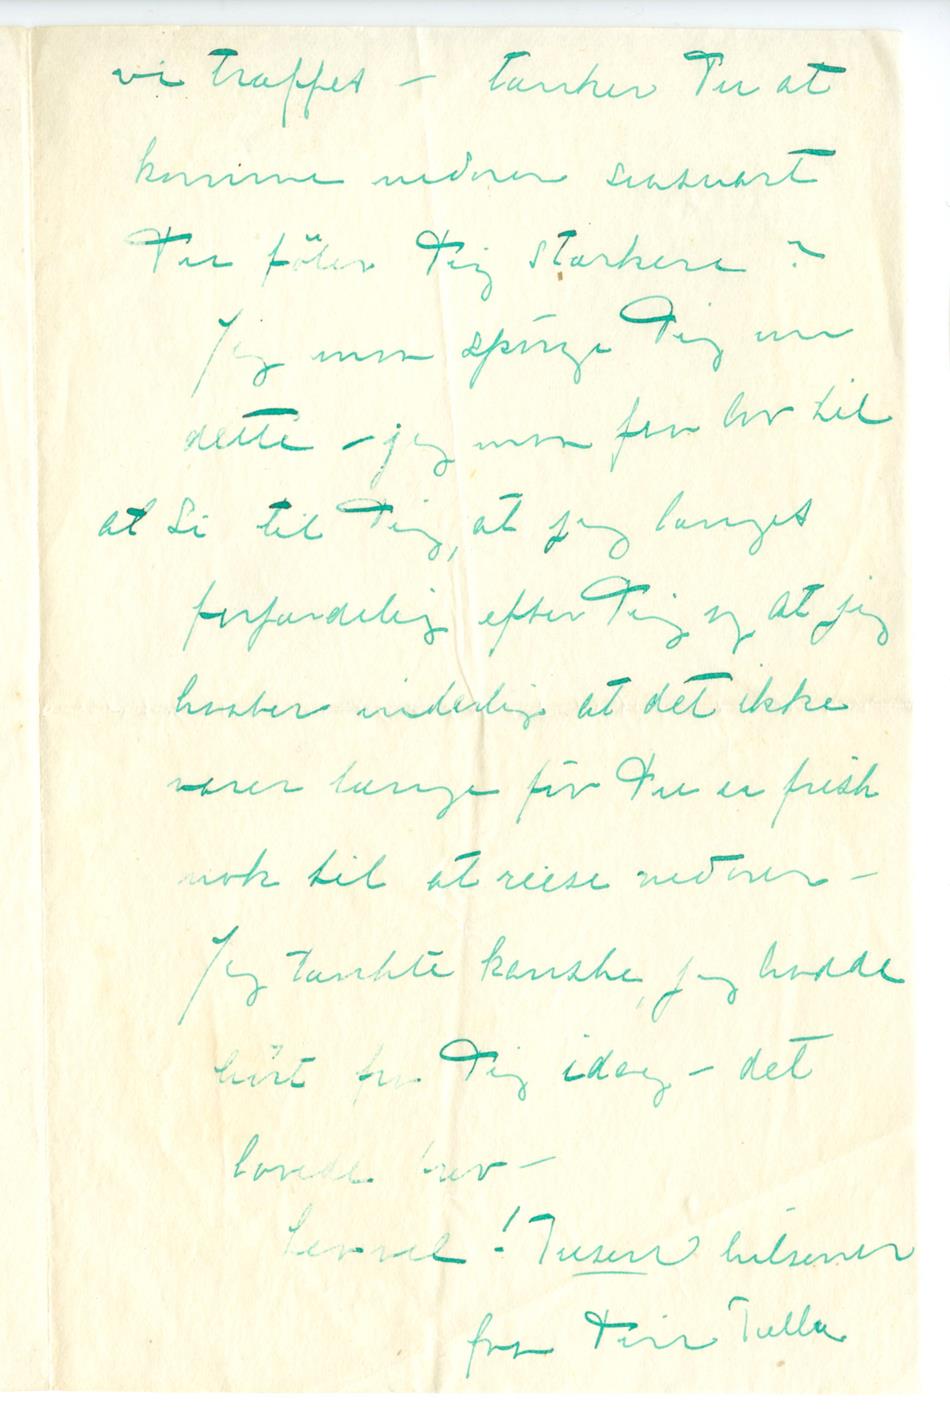 vi træffes – tænker Du at
komme nedover saasnart
Du føler Dig stærkere ?
Jeg maa spørge Dig om
dette – jeg maa faa lov til
at si til Dig, at jeg længes
forfærdelig efter Dig og at jeg
haaber inderlig at det ikke
varer længe før Du er frisk
nok til at reise nedover –
Jeg tænkte kanske, jeg hadde
hørt fra Dig idag – det
lovede brev –
Lev vel ! Tusen hilsener
fra Din Tulla